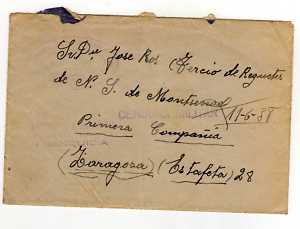 Sr. Dn. Jose Ros (Tercio de Requetes
de N. S. de Montserrat)
CENSURA MILITAR
11-6-38
Primera Compañia
(Zaragoza) (Estafeta) 28